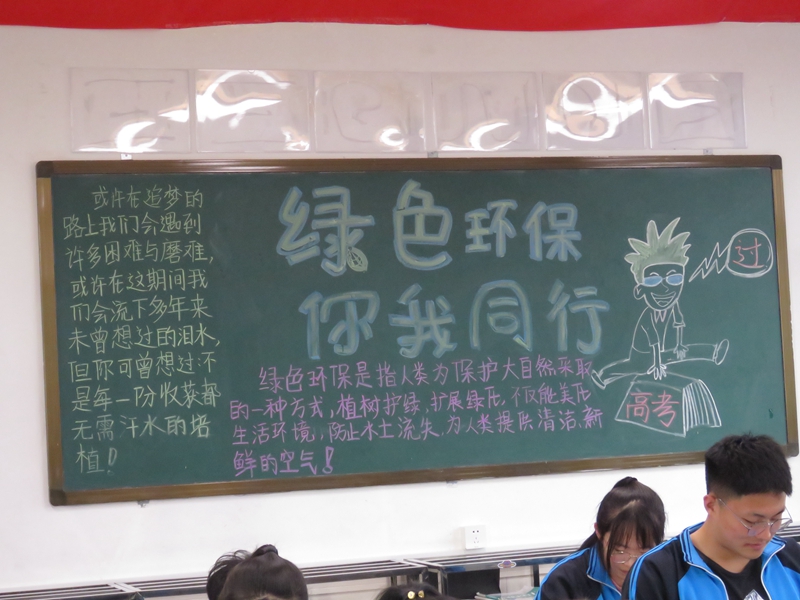 或许在追梦的
路上我们会遇到
许多困难与磨难,
或许在这期间我
们会流下多年来
未曾想过的泪水,
但你可曾想过:不
是每一份收获都
无需汗水的培
植!
绿色环保
你我同行
绿色环保是指人类为保护大自然采取
的一种方式,植树护绿,扩展绿化,不仅能美化
生活环境,防止水土流失,为人类提供清洁、新
鲜的空气!
过
高考